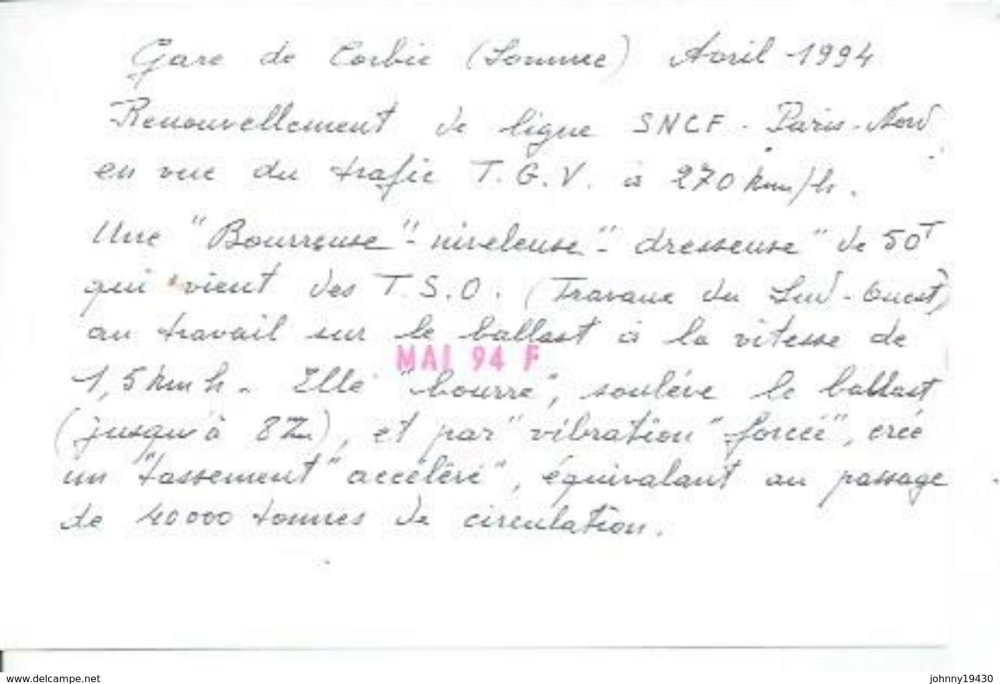 Gare de Corbie (Somme) Avril -1994
Renouvellement de ligne SNCF - Paris-Nord
en vue du trafic T.G.V. à 270 km/h.
Une "Bourreuse"-niveleuse"-dresseuse" de 50T
qui vient des T.S.O. (Travaux du Sud-Ouest)
au travail sur le ballast à la vitesse de
MAI 94 F
1,5 km h. Elle "bourre", soulève le ballast
(jusqu'à 8 ), et par "vibration" forcée", crée
un "tassement" accéléré", équivalant au passage
de 40000 tonnes de circulation.
johnny19430